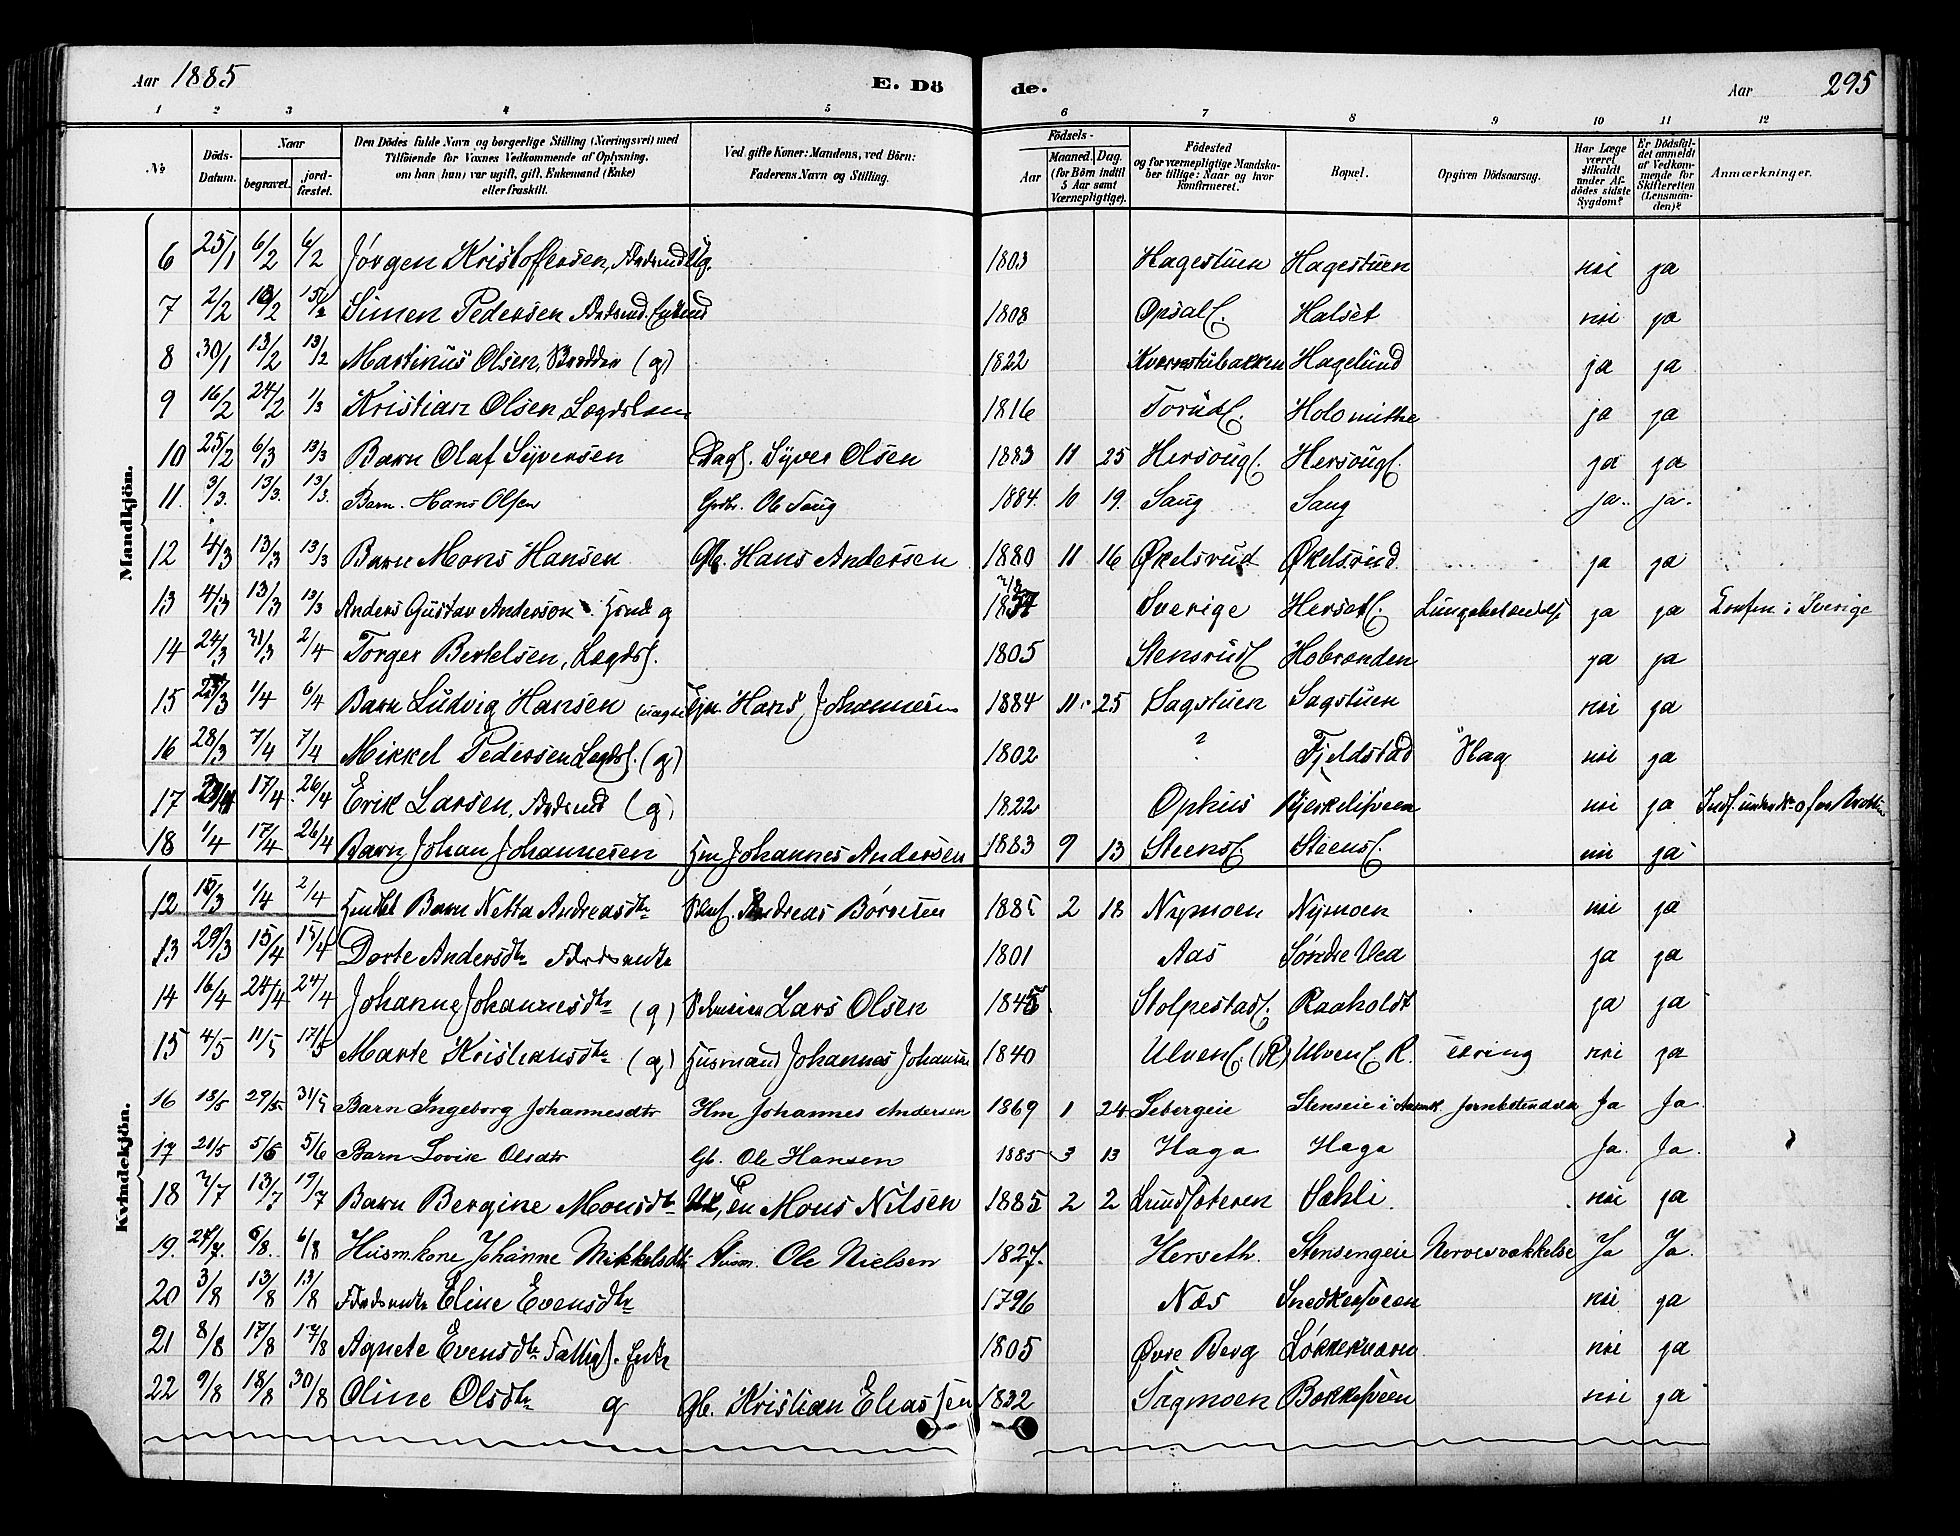 Aar 1885 E. Dö de. Aar 295
1 2 3 4 5 6 7 8 9 10 11 12
No. Döds-Datum. Naar begravet. jordfæstet. Den Dödes fulde Navn og borgerlige Stilling (Næringsvei) med Tilföiende for Voxnes Vedkommende af Oplysning, om han (hun) var ugift, gift, Enkemand (Enke) eller fraskilt. Ved gifte Koner: Mandens, ved Börn: Faderens Navn og Stilling. Födsels- Aar Maaned. Dag. (for Börn indtil 5 Aar samt Værnepligtige). Födested og for værnepligtige Mandskaber tillige: Naar og hvor konfirmeret. Bopæl. Opgiven Dödsaarsag. Har Læge været tilkaldt under Afdödes sidste Sygdom? Er Dödsfaldet anmeldt af Vedkommende for Skifteretten (Lensmanden)? Anmærkninger.
Mandkjön.
6 25/1 6/2 6/2 Jörgen Kristoffersen, 1803 Hagestuen Hagestuen nei ja
7 2/2 13/2 15/2 Simen Pedersen 1808 Opsal Halset nei ja
8 30/1 13/2 13/2 Martinus Olsen, (g) 1822 Kværnstubakken Hagelund ja ja
9 16/2 24/2 1/3 Kristian Olsen Lægdslem 1816 Torud Holomithe ja ja
10 25/2 6/3 13/3 Barn Olaf Syversen Dags. Syver Olsen 1883 11 25 Hersoug Hersoug ja ja
11. 3/3. 13/3. 13/3. Barn. Hans Olsen Grdbr. Ole Saug 1884. 10 19. Saug Saug ja. ja.
12 4/3 13/3 13/3 Barn Mons Hansen Gb. Hans Andersen 1880 11 16 Økelsrud Økelsrud ja ja
13 4/3 13/3 13/3 Anders Gustav Anderson g Sverige Herset Lungebetændelse ja ja i Sverige
14 24/3 31/3 2/4 Torger Bertelsen, Lægds. 1805 Stensrud Hobrænden ja ja
15 1/4 6/4 Barn Ludvig Hansen Hans Johannesen 1884 11 25 Sagstuen Sagstuen nei ja
16 28/3 7/4 7/4 Mikkel Pedersen Lægds. (g) 1802 ? Fjeldstad Slag nei ja
17 17/4 26/4 Erik Larsen, (g) 1822 Ophus nei ja
18 1/4 17/4 26/4 Barn Johan Johannesen Hm Johannes Andersen 1883 9 13 Steens Steens nei ja
Kvindekjön.
12 15/3 1/4 2/4 Barn Netta Andreasdtr Andreas Börresen 1885 2 18 Nymoen Nymoen nei ja
13 29/3 15/4 15/4 Dorte Andersdtr 1801 Aas Söndre Vea ja ja
14 16/4 24/4 24/4 Johanne Johannesdtr (g) Lars Olsen 1845 Stolpestad Raaholdt ja ja
15 4/5 11/5 17/5 Marte Kristiansdtr (g) Husmand Johannes Johansen 1840 Ulven (R) Ulven R. Tæring nei ja
16 18/5 29/5 31/5 Barn Ingeborg Johannesdtr Hm Johannes Andersen 1869 1 24 Sebergeie Stenseie i Ja Ja
17 21/5 5/6 5/6 Barn Lovise Olsdtr Gb. Ole Hansen 1885 3 13 Haga Haga Ja. Ja.
18 7/7 13/7 19/7 Barn Bergine Monsdtr Mons Nilsen 1885 2 2 Sæhli nei ja
19. 6/8. 6/8 Husm.kone Johanne Mikkelsdtr Husm. Ole Nielsen 1827. Herseth. Stensengeie Nervesvækkelse Ja Ja
20 3/8 13/8 13/8 Eline Evensdtr 1796 Næs Snedkersveen nei ja
21 8/8 17/8 17/8 Agnete Evensdtr Fattigl. Enke 1805 Øvre Berg Løkkekværn nei ja
22 9/8 18/8 30/8 Oline Olsdtr g Gb. Kristian Eliassen 1832 Sagmoen Bakkesveen nei ja